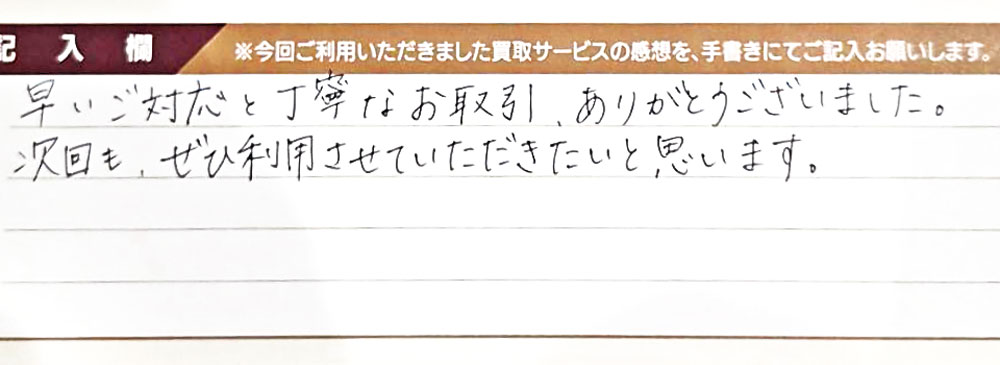 記入欄 ※今回ご利用いただきました買取サービスの感想を、手書きにてご記入お願いします。
早いご対応と丁寧なお取引、ありがとうございました。
次回も、ぜひ利用させていただきたいと思います。